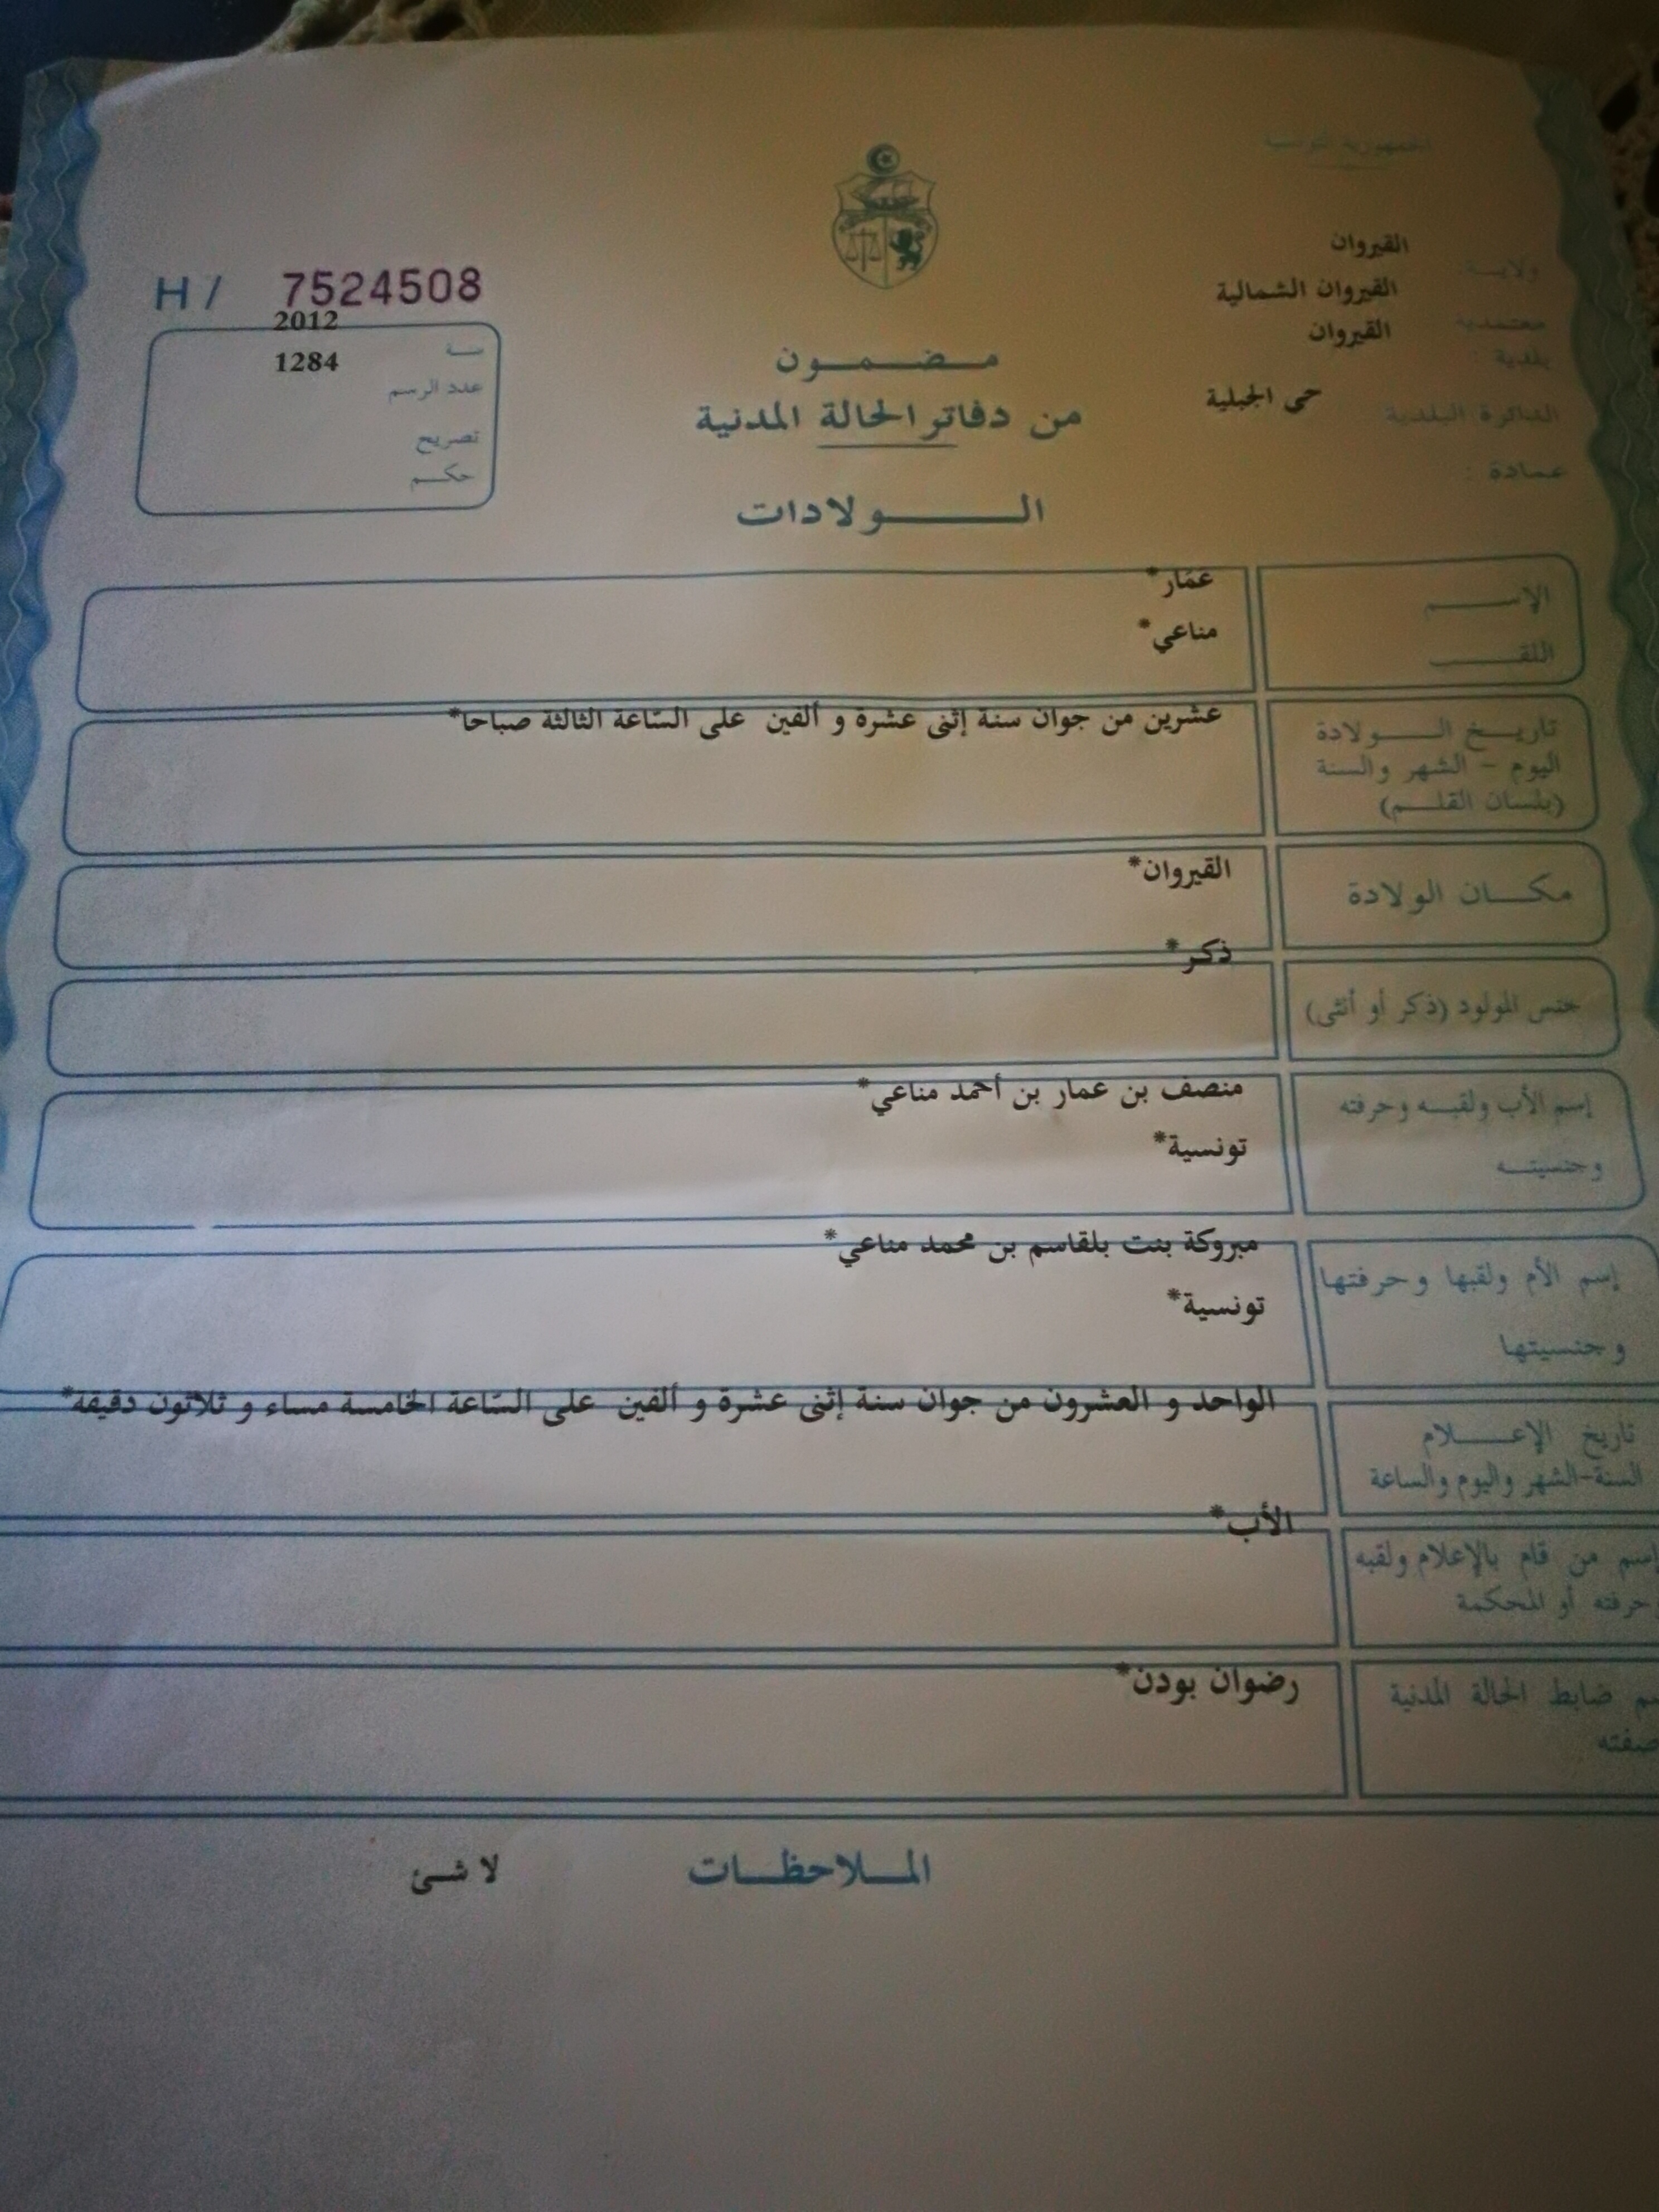 الجمهورية التونسية
ولايـــة القيروان
معتمدية القيروان الشمالية
بلدية : القيروان
الدائرة البلدية حى الجبلية
عمادة :
H / 7524508
سنة 2012
عدد الرسم 1284
تصريح
حكم
مضمون
من دفاتر الحالة المدنية
الولادات
الإسم عمّار*
اللقب مناعي*
تاريخ الولادة عشرين من جوان سنة إثنى عشرة و ألفين على السّاعة الثالثة صباحا*
اليوم - الشهر والسنة
(بلسان القلم)
مكان الولادة القيروان*
جنس المولود (ذكر أو أنثى) ذكر*
إسم الأب ولقبه وحرفته منصف بن عمار بن أحمد مناعي*
وجنسيته تونسية*
إسم الأم ولقبها وحرفتها مبروكة بنت بلقاسم بن محمد مناعي*
وجنسيتها تونسية*
تاريخ الإعلام الواحد و العشرون من جوان سنة إثنى عشرة و ألفين على السّاعة الخامسة مساء و ثلاثون دقيقة*
السنة-الشهر واليوم والساعة
إسم من قام بالإعلام ولقبه الأب*
حرفته أو المحكمة
ضابط الحالة المدنية رضوان بودن*
صفته
الملاحظات لا شئ